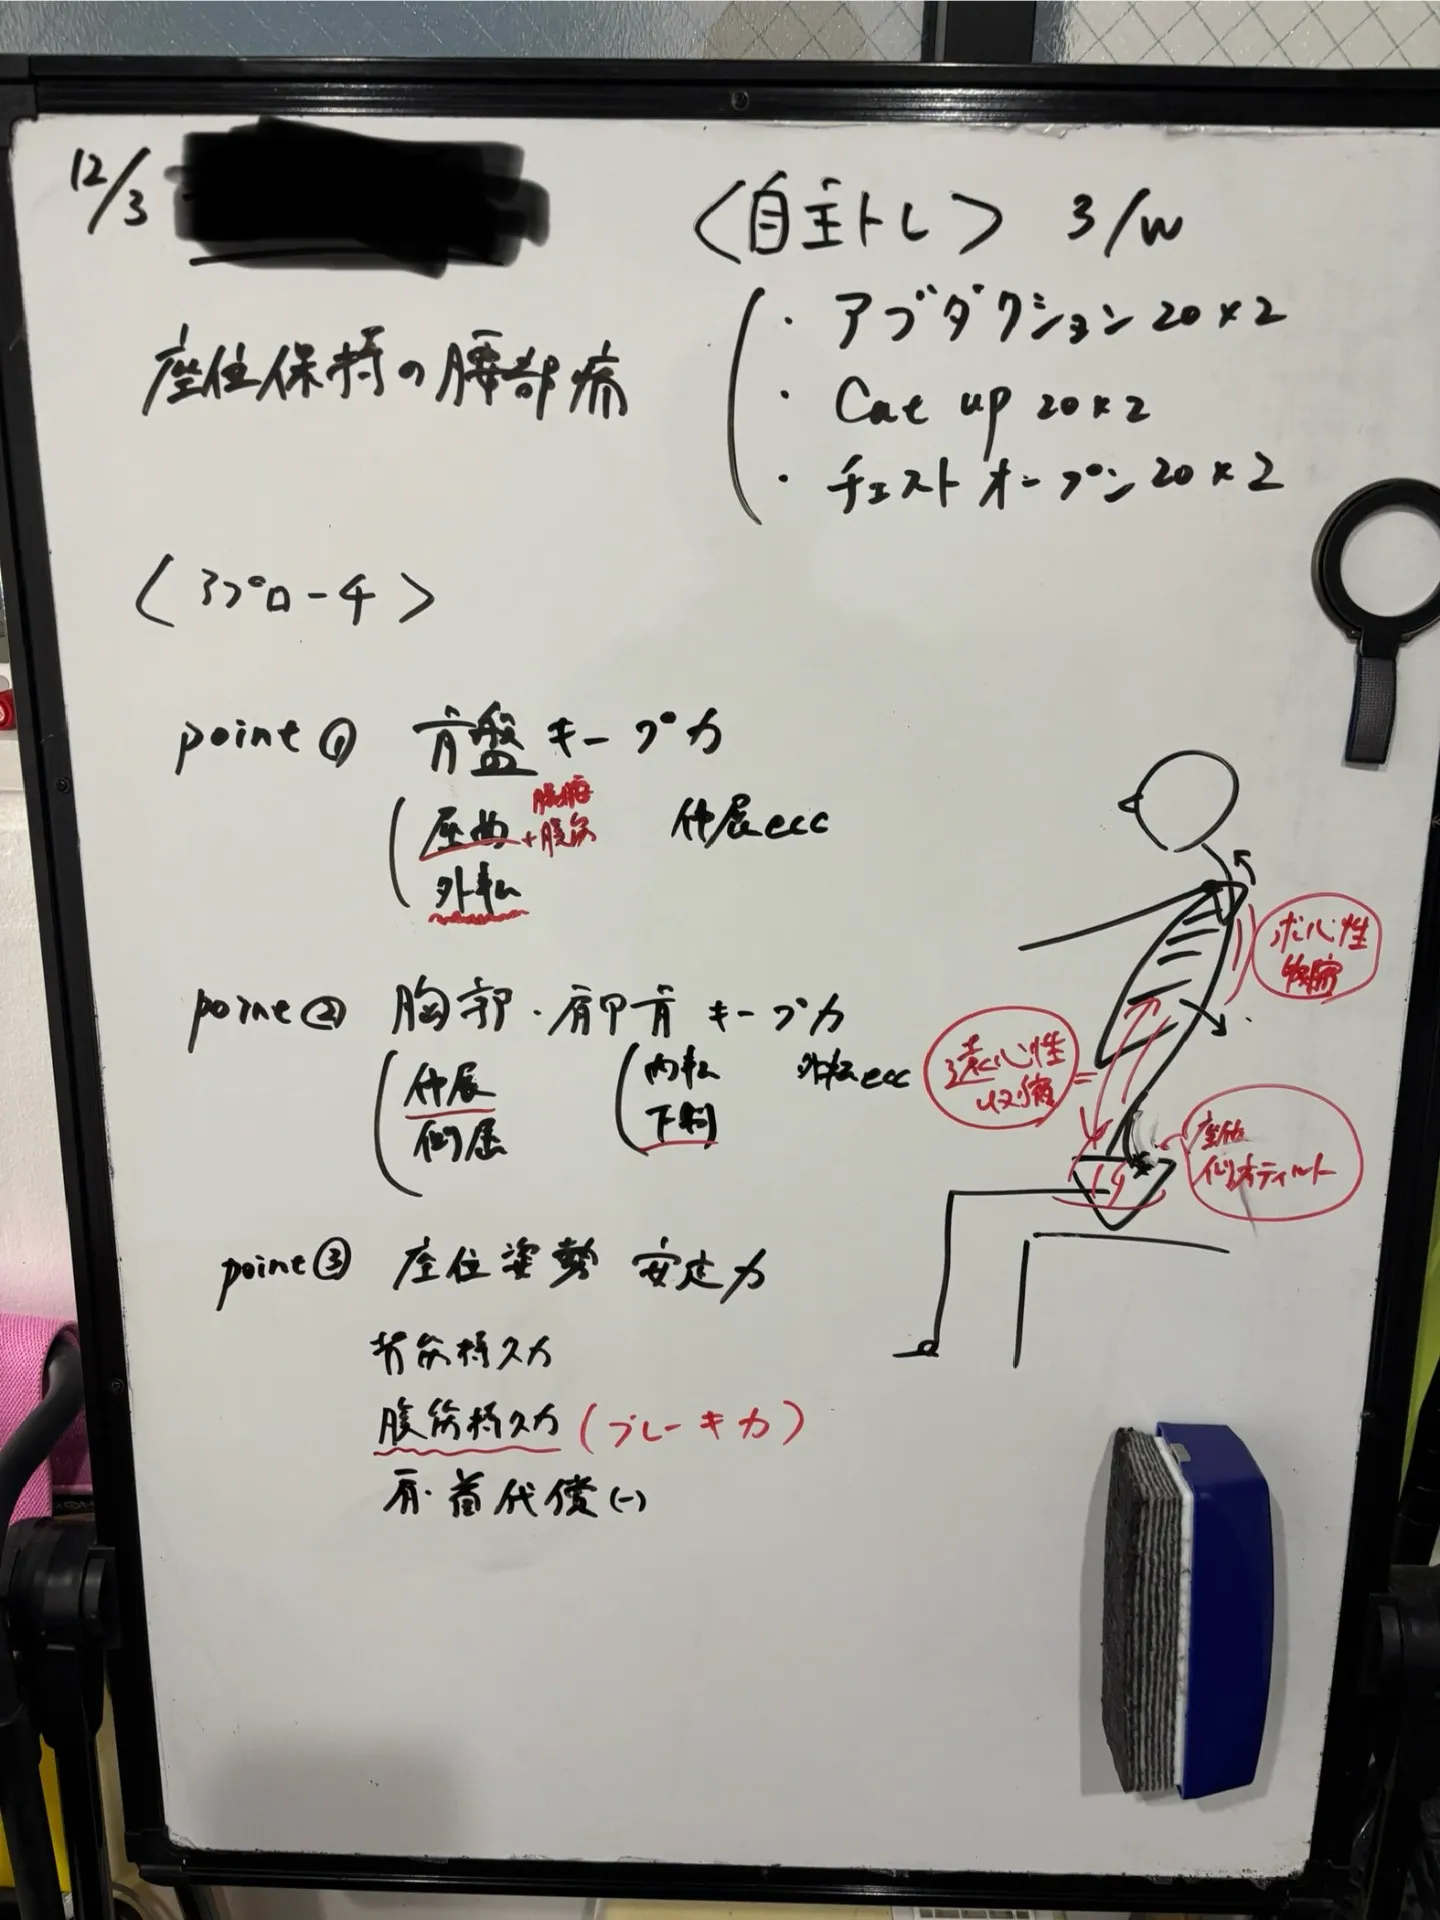 12/3
座位保持の腰部痛
〈自主トレ〉 3/w
・アブダクション 20×2
・Cat up 20×2
・チェストオープン 20×2
〈アプローチ〉
point① 骨盤キープ力
屈曲 + 腹筋 伸展ecc
外転
point② 胸郭・肩甲骨キープ力
伸展 内転 外転ecc
側屈 下制
point③ 座位姿勢 安定力
背筋持久力
腹筋持久力(ブレーキ力)
肩・首代償(-)
求心性
収縮
遠心性
収縮
座位
ティルト